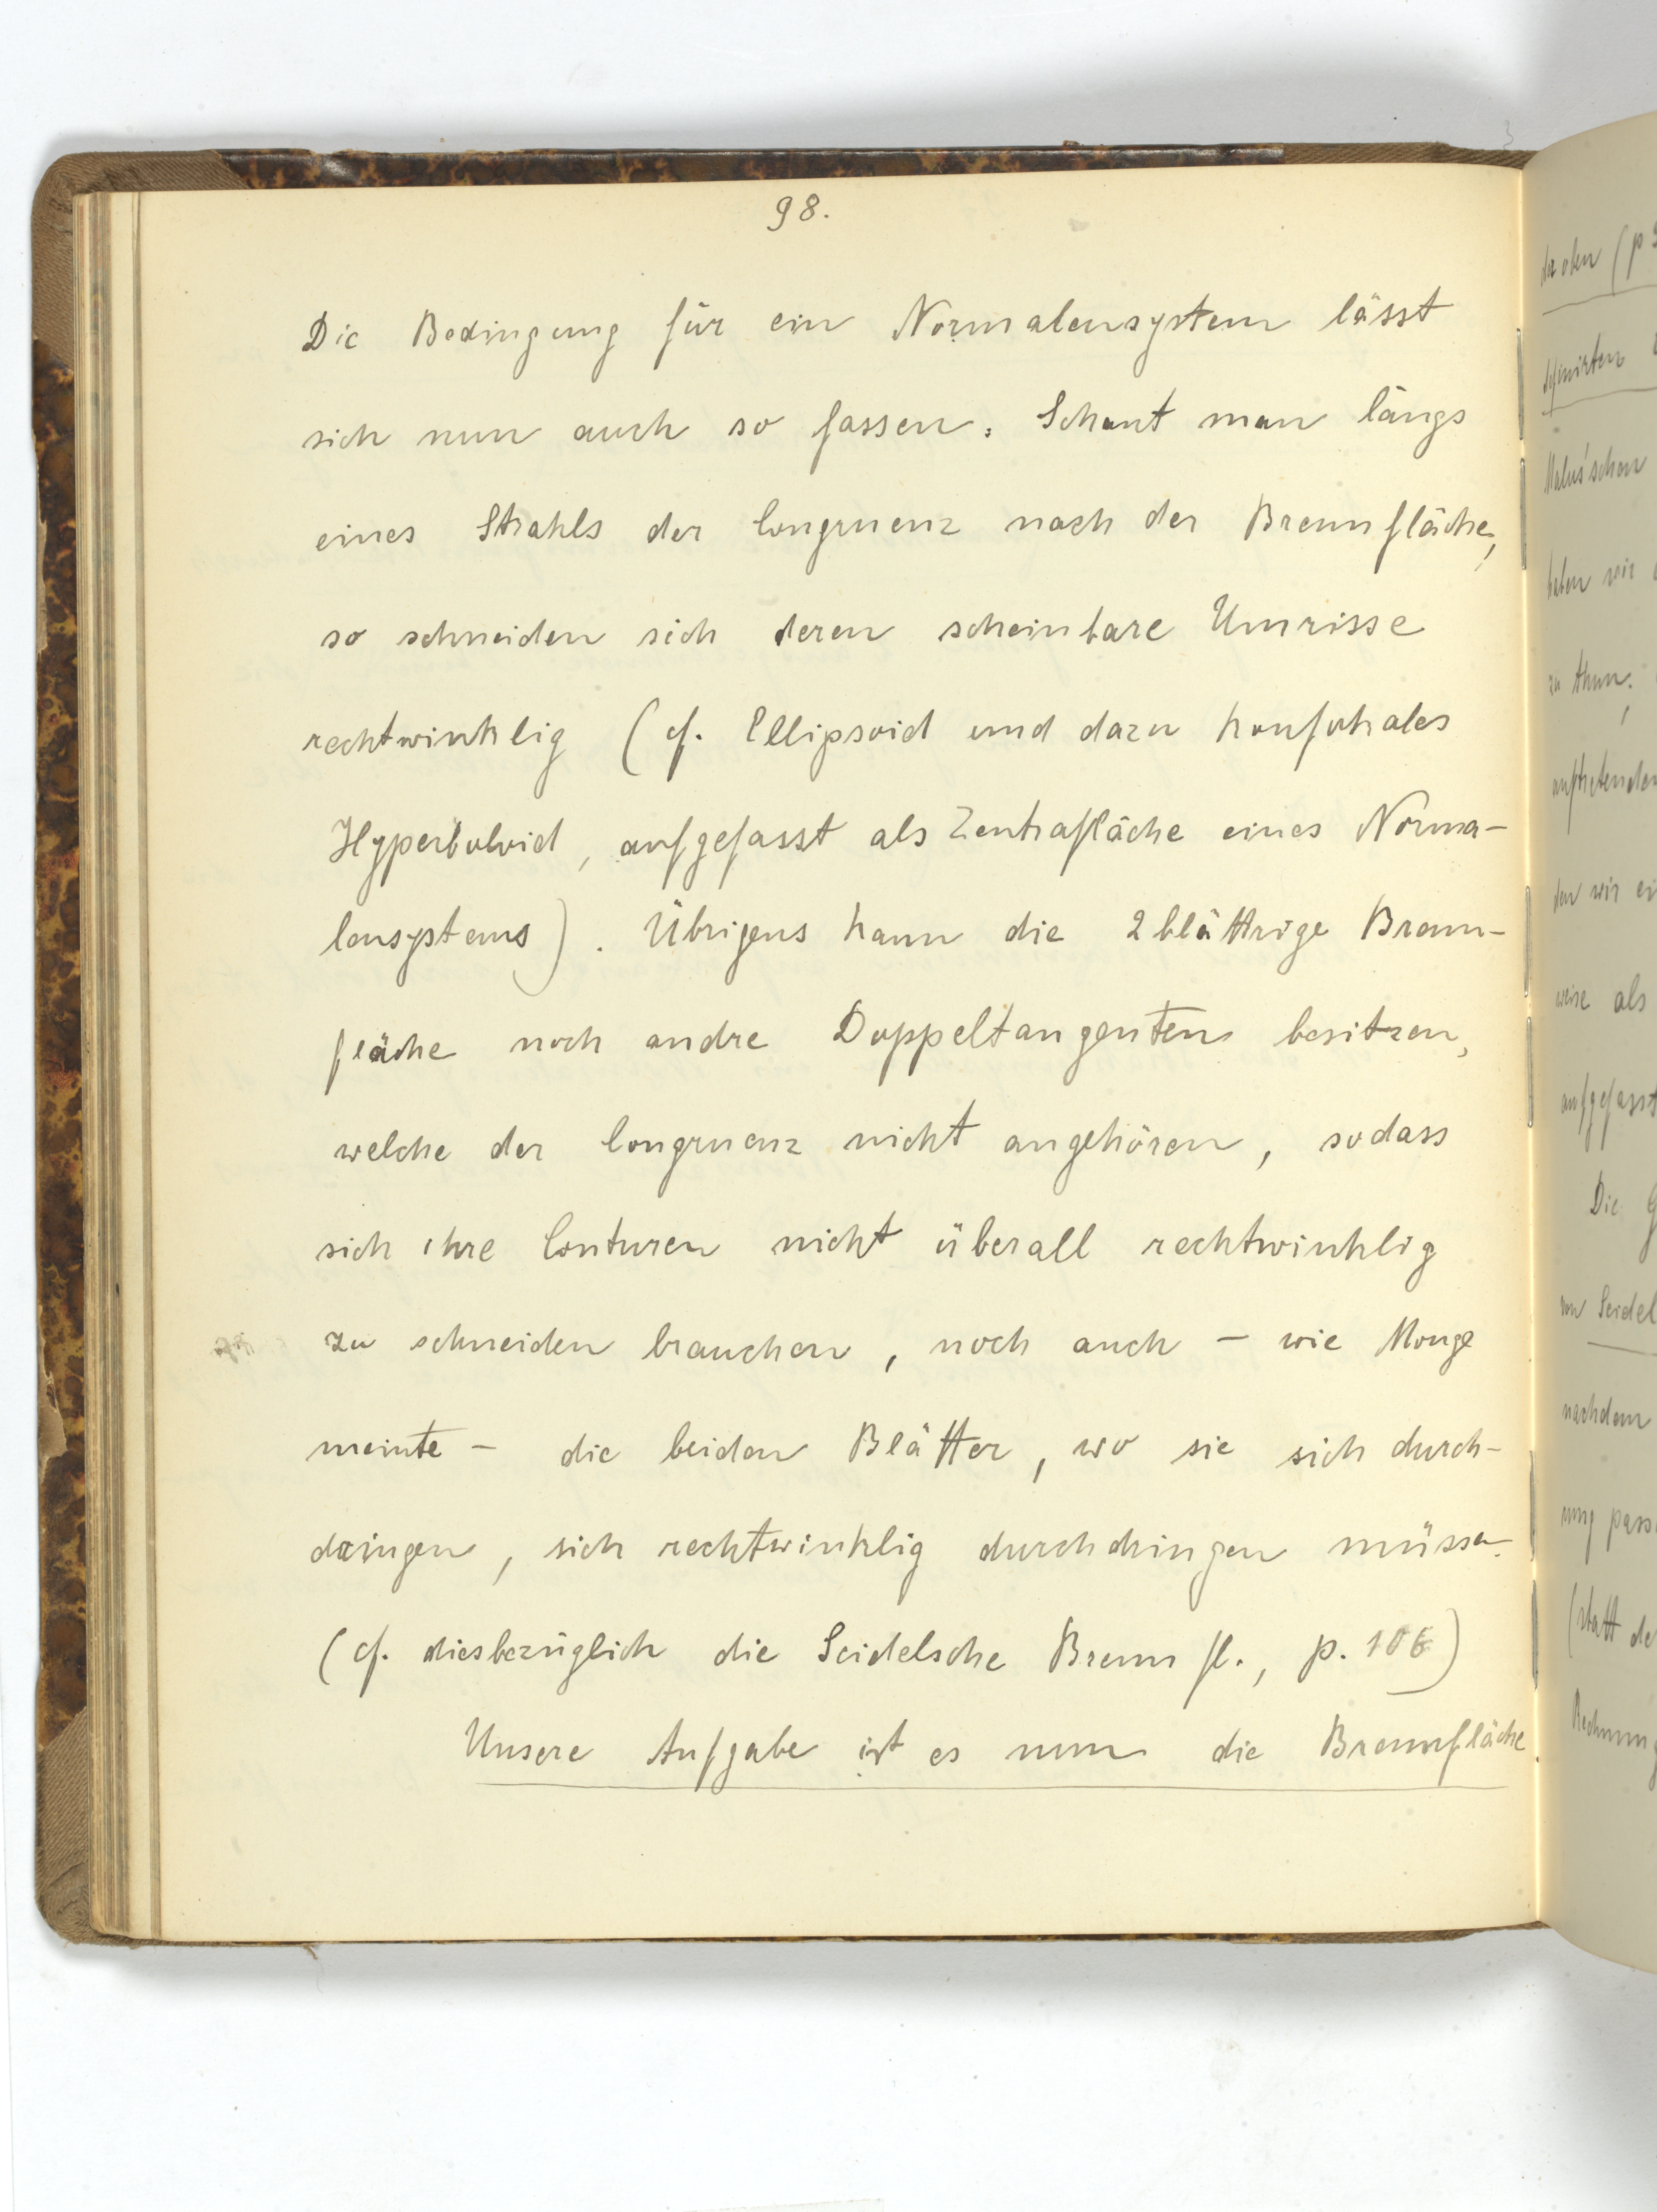 98.
Die Bedingung für ein Normalensystem lässt
sich nun auch so fassen: Schaut man längs
eines Strahls der Congruenz nach der Brennfläche,
so schneiden sich deren scheinbare Umrisse
rechtwinklig (cf. Ellipsoid und dazu konfokales
Hyperboloid, aufgefasst als Zentrafläche eines Norma-
lensystems). Übrigens kann die 2 blättrige Brenn-
fläche noch andre Doppeltangenten besitzen,
welche der Congruenz nicht angehören, sodass
sich ihre Conturen nicht überall rechtwinklig
zu schneiden brauchen, noch auch – wie Monge
meinte – die beiden Blätter, wo sie sich durch-
dringen, sich rechtwinklig durchdringen müssen.
(cf. diesbezüglich die Seidelsche Brennfl., p. 106)
Unsere Aufgabe ist es nun die Brennfläche
der oben (p
definirten
Malus'schen
haben wir
zu thun.
auftretenden
den wir
weise als
aufgefasst
Die
von Seidel
nachdem
ung
(statt de
Rechnung